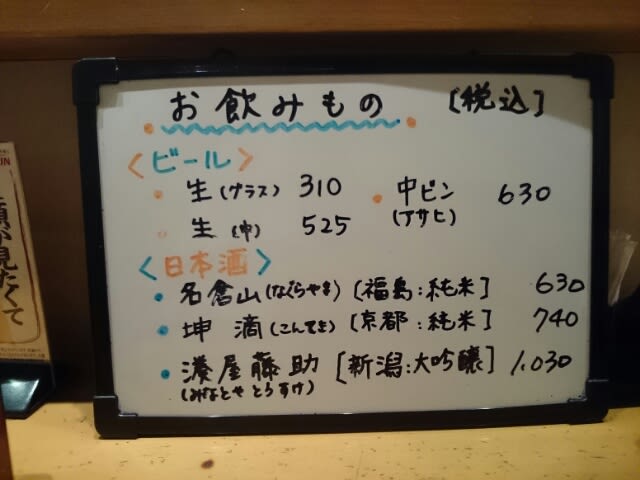 お飲みもの [税込]
<ビール>
・生(グラス) 310 ・中ビン 630
(アサヒ)
・生(中) 525
<日本酒>
・名倉山(なぐらやま) [福島:純米] 630
・坤滴(こんてき) [京都:純米] 740
・湊屋藤助 [新潟:大吟醸] 1,030
(みなとやとうすけ)
顔が見たくて